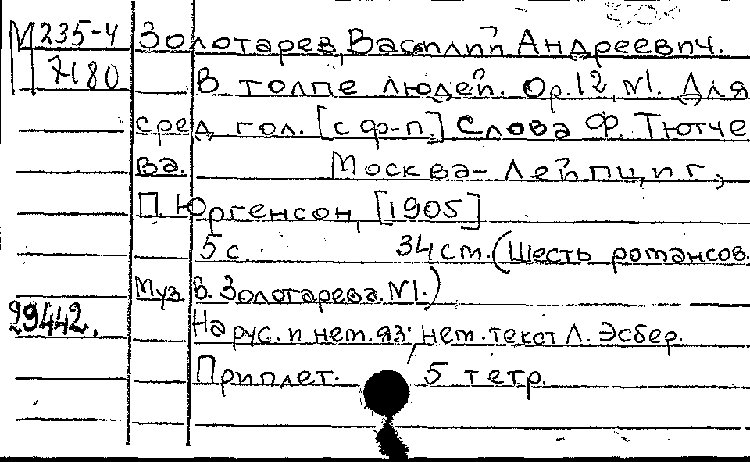 М 235-4 Золотарев, Василий Андреевич.
7180 В толпе людей. Ор.12, №1. Для
сред гол. [с ф-п.] Слова Ф. Тютче
ва. Москва-Лейпциг,
П. Юргенсон, [1905]
5 с 34 см. (Шесть романсов.
Муз. В. Золотарева. №1.)
29442. На рус. и нем. яз; нем. текст Л. Эсбер.
Приплет. 5 тетр.